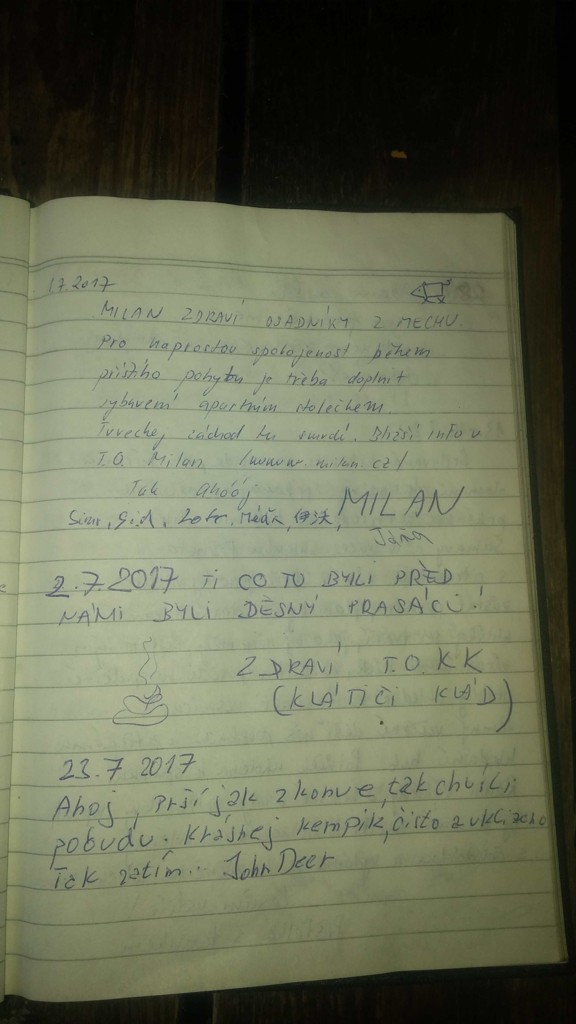 1.7.2017
MILAN ZDRAVÍ OSADNÍKY Z MECHU.
Pro naprostou spokojenost během
příštího pobytu je třeba doplnit
vybavení apartmám stolečkem.
Tureckej záchod tu smrdí. Bližší info v
T.O. Milan /www milan.cz/
Tak ahóój
MILAN
2.7.2017 TI CO TU BYLI PŘED
NÁMI BYLI DĚSNÝ PRASÁCÚ!
ZDRAVÍ T.O. KK
(KLÁTIČI KLÁD)
23.7 2017
Ahoj, prší jak z konve, tak chvíli
pobudu. krásnej kempík, čisto a uklizeno
Tak zatím.. John Deer